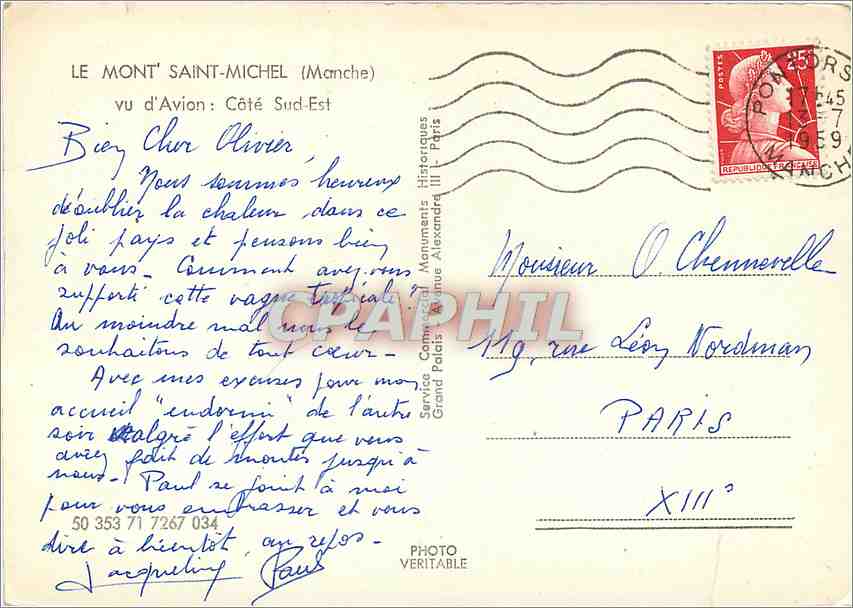 LE MONT' SAINT-MICHEL (Manche)
vu d'Avion : Côté Sud-Est
Bien Cher Olivier,
Nous sommes heureux
d'oublier la chaleur dans ce
joli pays et pensons bien
à vous - Comment avez-vous
supporté cette vague tropicale ?
Au moindre mal nous le
souhaitons de tout cœur -
Avec mes excuses pour mon
accueil "endormi" de l'autre
soir malgré l'effort que vous
aviez fait de monter jusqu'à
nous - Paul se joint à moi
pour vous embrasser et vous
dire à bientôt, au repos -
Jacqueline Paul
50 353 71 7267 034
Service Commercial Monuments Historiques
Grand Palais - Avenue Alexandre III - Paris
PHOTO
VERITABLE
POSTES
25F
REPUBLIQUE FRANÇAISE
PONTORSON
17H45
13-7
1959
MANCHE
Monsieur O. Chennevelle
119, rue Léon Nordman
PARIS
XIIIe
CPAPHIL